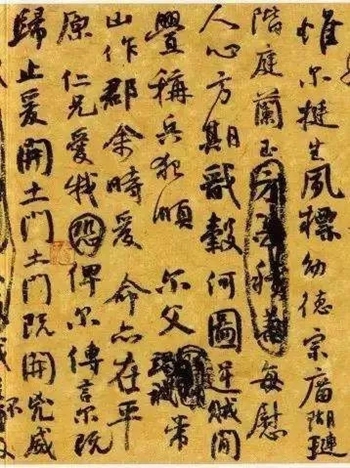 惟尔挺生夙標幼德宗廟瑚璉
階庭蘭玉每慰
人心方期戩穀何圖逆賊閒
釁稱兵犯順尔父竭誠常
山作郡余時受命亦在平
原仁兄愛我恐俾尔傳言尔既
歸止爰開土門土門既開凶威